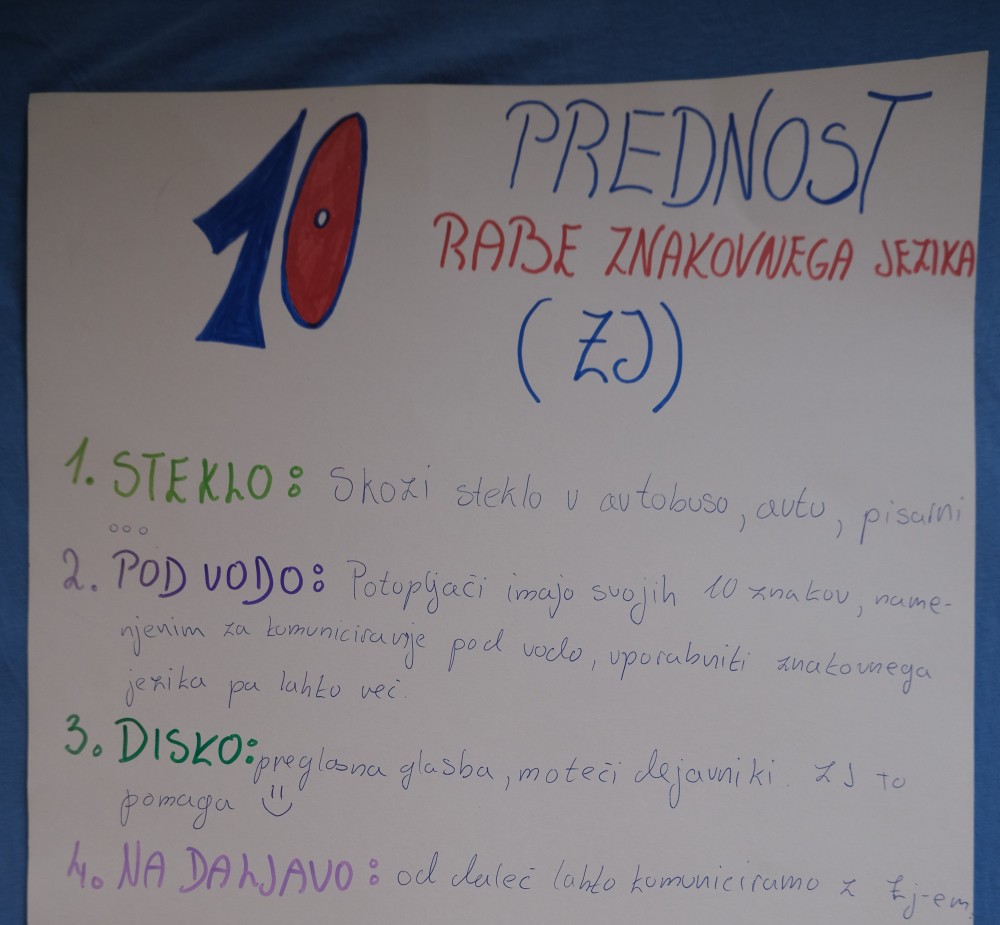 10 PREDNOST
RABE ZNAKOVNEGA JEZIKA
(ZJ)
1. STEKLO: Skozi steklo v avtobuso, avtu, pisarni
...
2. POD VODO: Potopljači imajo svojih 10 znakov, name-
njenim za komuniciranje pod vodo, uporabniti znakovnega
jezika pa lahko več.
3. DISKO: preglasna glasba, moteči dejavniki. ZJ to
pomaga
4. NA DALJAVO: od daleč lahko komuniciramo z Zj-em,